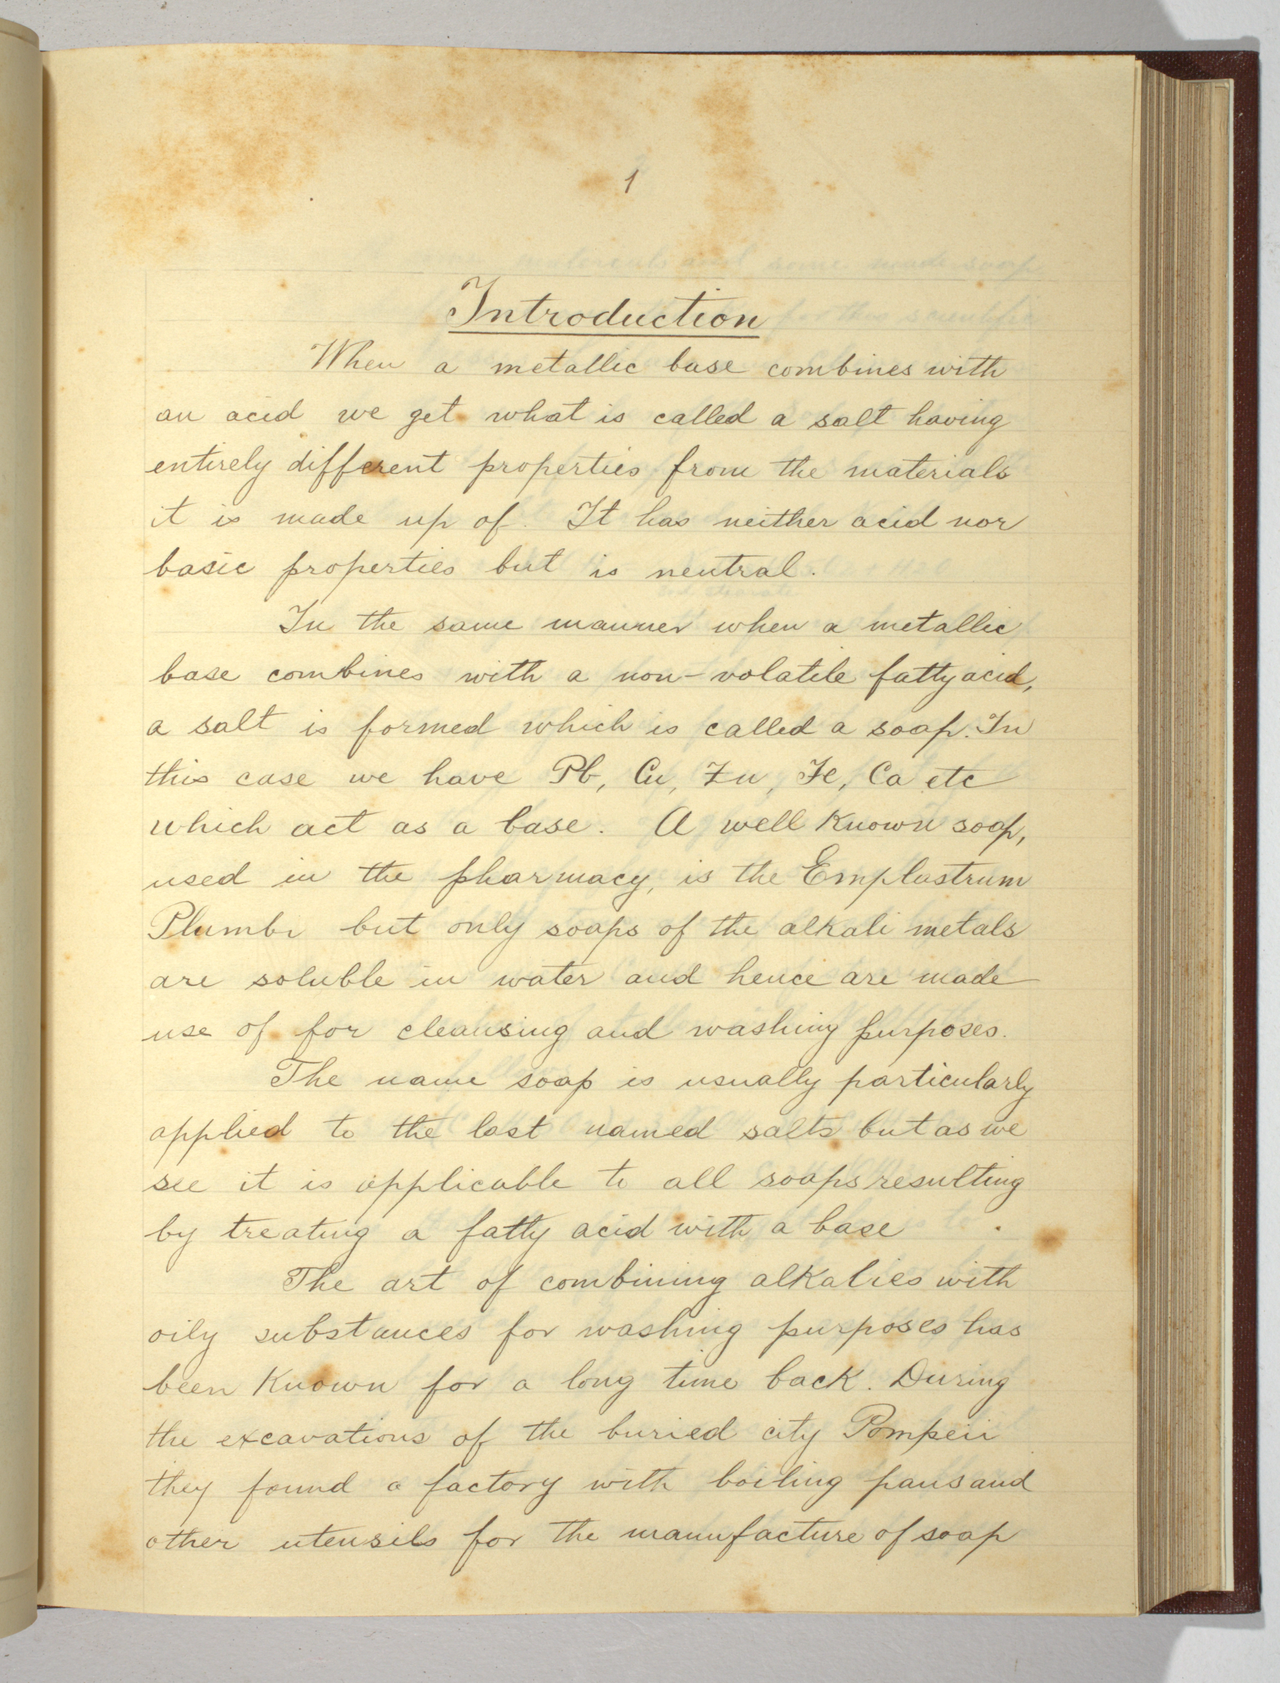 1
Introduction
When a metallic base combines with
an acid we get what is called a salt having
entirely different properties from the materials
it is made up of. It has neither acid nor
basic properties but is neutral.
In the same manner when a metallic
base combines with a non-volatile fatty acid,
a salt is formed which is called a soap. In
this case we have Pb, Cu, Zn, Fe, Ca etc
which act as a base. A well Known soap,
used in the pharmacy, is the Emplastrum
Plumbi but only soaps of the alkali metals
are soluble in water and hence are made
use of for cleansing and washing purposes.
The name soap is usually particularly
applied to the last named salts but as we
see it is applicable to all soaps resulting
by treating a fatty acid with a base .
The art of combining alkalies with
oily substances for washing purposes has
been Known for a long time back. During
the excavations of the buried city Pompeii
they found a factory with boiling pans and
other utensils for the manufacture of soap